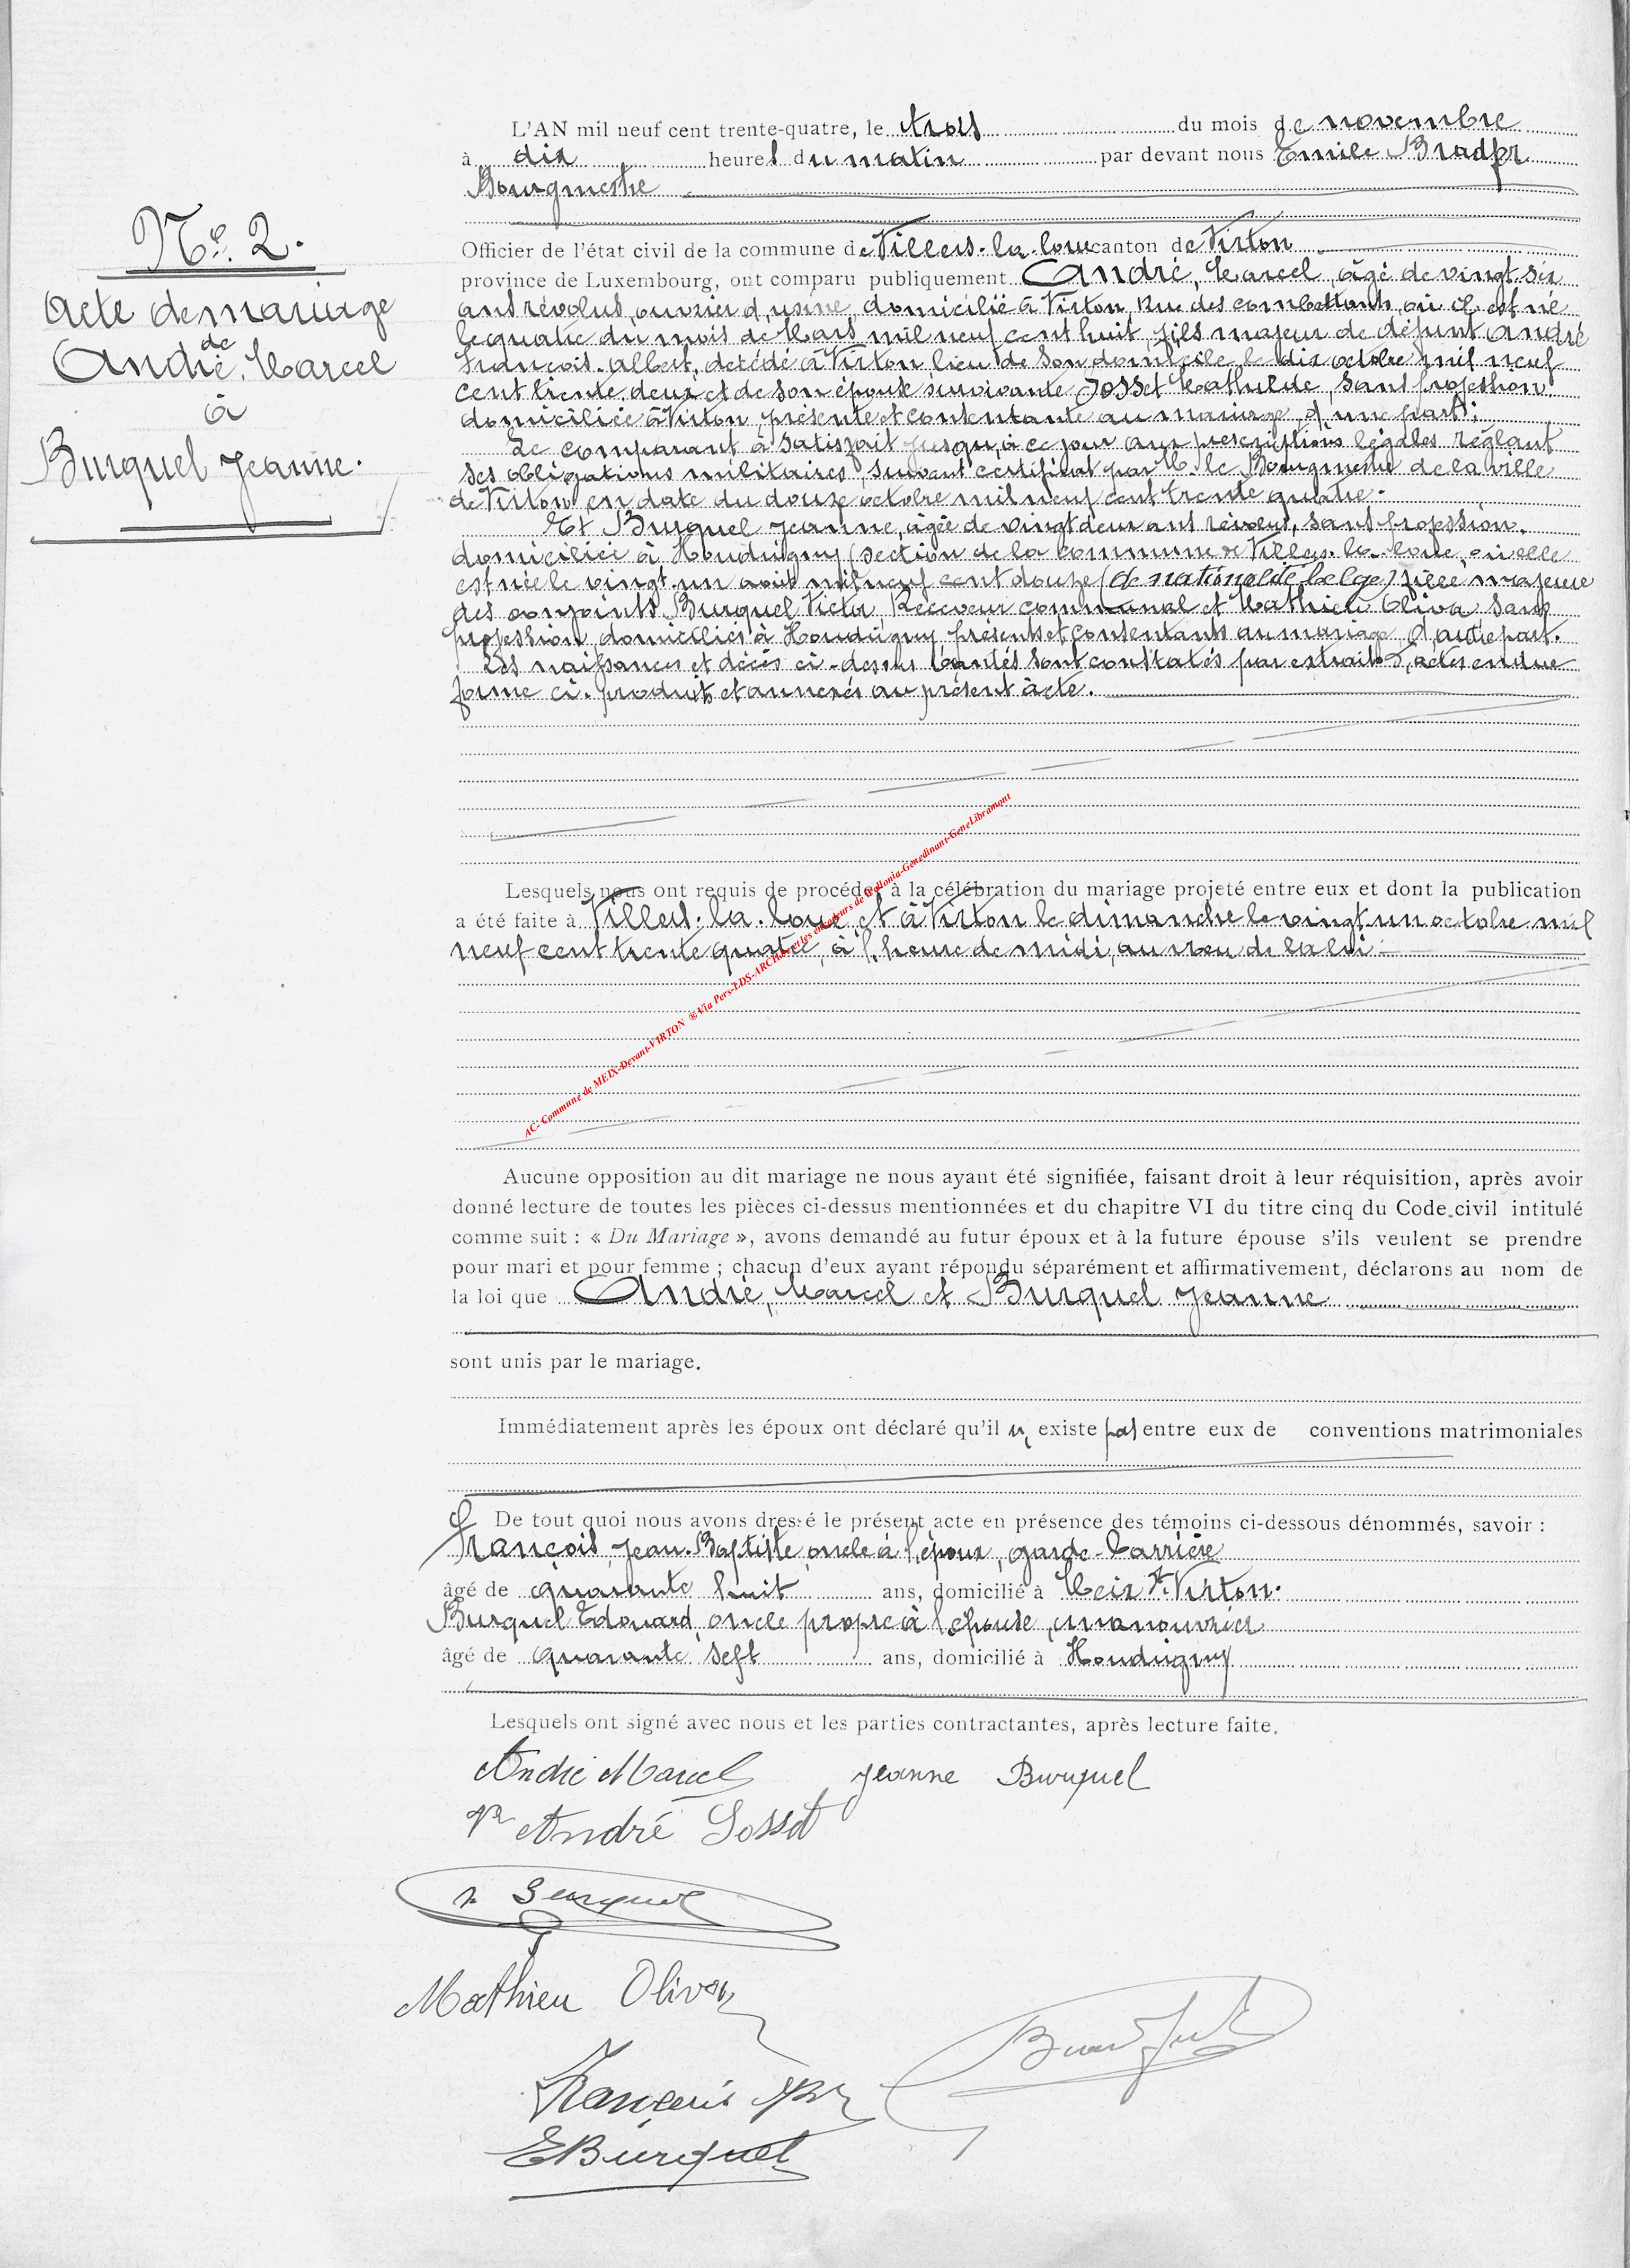 L'AN mil neuf cent trente-quatre, le trois du mois de novembre
à dix heures du matin par devant nous Emile Bradfer
Bourgmestre
N° 2.
Acte de mariage
de
André, Marcel
à
Burquel Jeanne.
Officier de l'état civil de la commune de Villers-la-loue canton de Virton
province de Luxembourg, ont comparu publiquement André, Marcel, âgé de vingt six
ans révolus, ouvrier d'usine, domicilié à Virton, Rue des combattants, où il est né
le quatre du mois de Mars mil neuf cent huit, fils majeur de défunt André
François-Albert, décédé à Virton lieu de son domicile le dix octobre mil neuf
cent trente deux et de son épouse survivante Josset Mathilde, sans profession,
domiciliée à Virton, présente et consentante au mariage, d'une part;
Le comparant à satisfait jusqu'à ce jour aux prescriptions légales réglant
ses obligations militaires, suivant certificat par M. le Bourgmestre de la ville
de Virton en date du douze octobre mil neuf cent trente quatre.
Et Burquel Jeanne, âgée de vingt deux ans révolus, sans profession,
domiciliée à Houdrigny (section de la commune de Villers-la-loue, où elle
est née le vingt-un août mil neuf cent douze (de nationalité belge) fille majeure
des conjoints Burquel Victor, Receveur communal et Mathieu Oliva, sans
profession, domiciliés à Houdrigny, présents et consentants au mariage, d'autre part.
Les naissances et décès ci-dessus vantés sont constatés par extraits d'actes en due
forme ci-produits et annexés au présent acte.
Lesquels nous ont requis de procéder à la célébration du mariage projeté entre eux et dont la publication
a été faite à Villers-la-loue et à Virton le dimanche le vingt-un octobre mil
neuf cent trente quatre, à l'heure de midi, au vœu de la loi
AC- Commune de MEIX-Devant-VIRTON ® Via Pers-LDS-ARCH et les encodeurs de Wallonia-Genedinant-GeneLibramont
Aucune opposition au dit mariage ne nous ayant été signifiée, faisant droit à leur réquisition, après avoir
donné lecture de toutes les pièces ci-dessus mentionnées et du chapitre VI du titre cinq du Code civil intitulé
comme suit : « Du Mariage », avons demandé au futur époux et à la future épouse s'ils veulent se prendre
pour mari et pour femme ; chacun d'eux ayant répondu séparément et affirmativement, déclarons au nom de
la loi que André, Marcel et Burquel Jeanne
sont unis par le mariage.
Immédiatement après les époux ont déclaré qu'il n' existe pas entre eux de conventions matrimoniales
De tout quoi nous avons dressé le présent acte en présence des témoins ci-dessous dénommés, savoir :
François Jean-Baptiste, oncle à l'époux, garde-barrière
âgé de quarante huit ans, domicilié à Meix dt Virton.
Burquel Edouard, oncle propre à l'épouse, manouvrier
âgé de quarante sept ans, domicilié à Houdrigny
Lesquels ont signé avec nous et les parties contractantes, après lecture faite.
André Marcel Jeanne Burquel
André Josset
V. Burquel
Mathieu Oliva
François JB
Bradfer
E Burquel